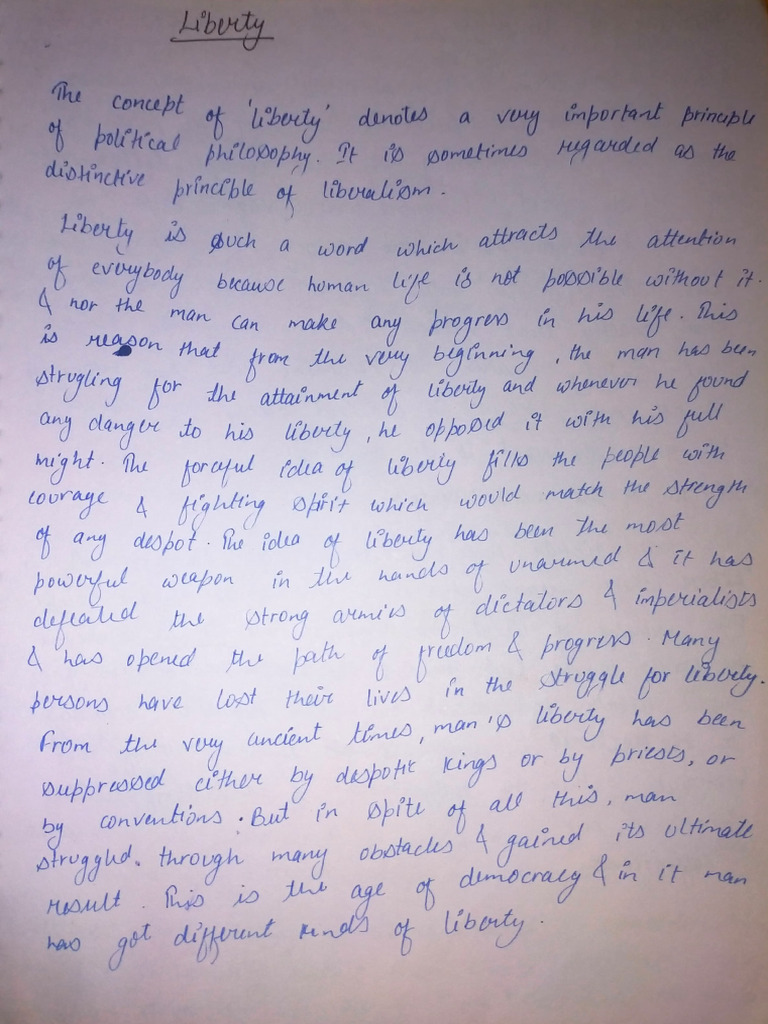 Liberty
The concept of 'liberty' denotes a very important principle
of political philosophy. It is sometimes regarded as the
distinctive principle of liberalism.
Liberty is such a word which attracts the attention
of everybody because human life is not possible without it.
& nor the man can make any progress in his life. This
is reason that from the very beginning, the man has been
strugling for the attainment of liberty and whenever he found
any danger to his liberty, he opposed it with his full
might. The forceful idea of liberty fills the people with
courage & fighting spirit which would match the strength
of any despot. The idea of liberty has been the most
powerful weapon in the hands of unarmed & it has
defeated the strong armies of dictators & imperialists
& has opened the path of freedom & progress. Many
persons have lost their lives in the struggle for liberty.
From the very ancient times, man's liberty has been
suppressed either by despotic kings or by priests, or
by conventions. But in spite of all this, man
struggled. through many obstacles & gained its ultimate
result. This is the age of democracy & in it man
has got different kinds of liberty.